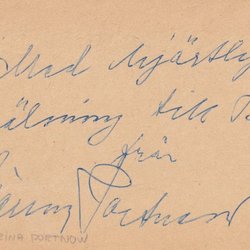 Med hjärtlig
hälsning till
från
Portnow
RINA PORTNOW